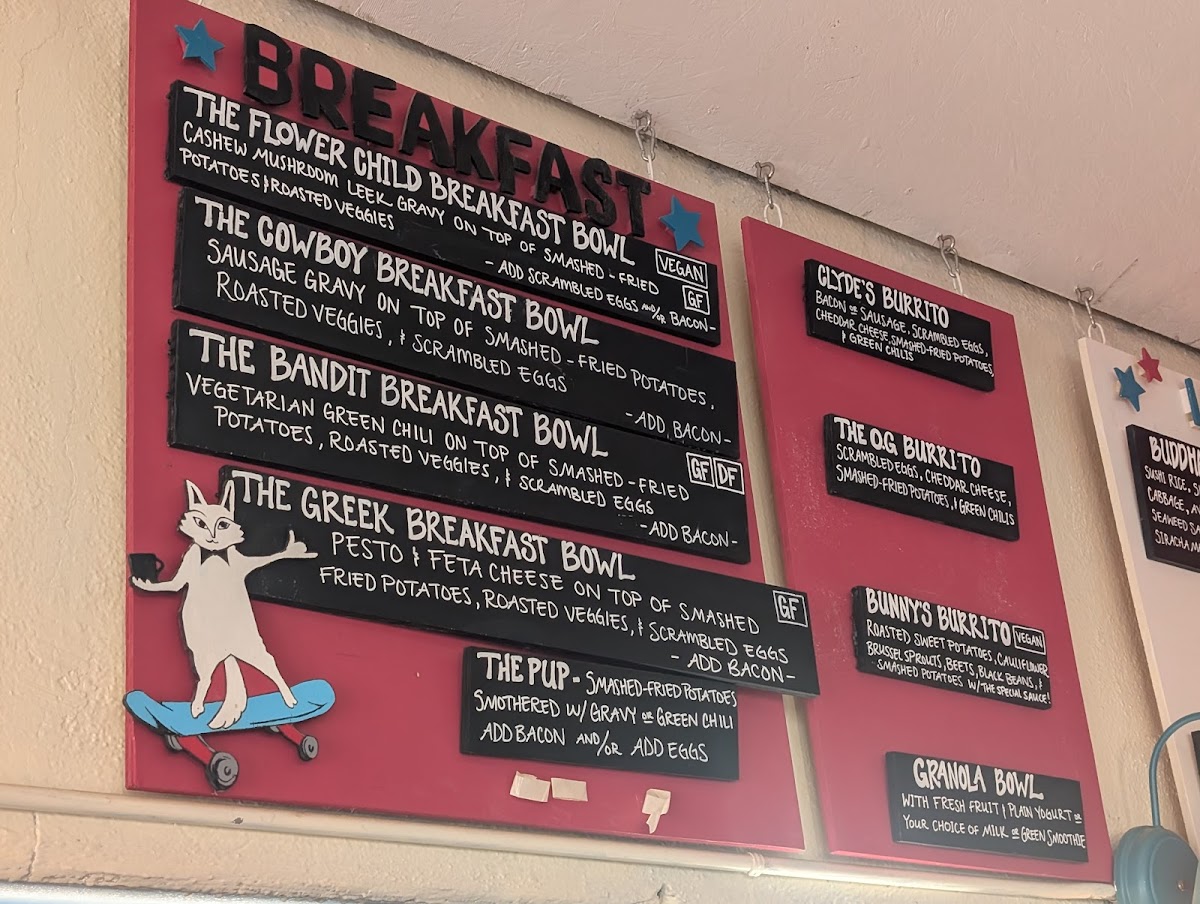 BREAKFAST
THE FLOWER CHILD BREAKFAST BOWL
CASHEW MUSHROOM LEEK GRAVY ON TOP OF SMASHED - FRIED
POTATOES & ROASTED VEGGIES
VEGAN
GF
- ADD SCRAMBLED EGGS AND/OR BACON -
THE COWBOY BREAKFAST BOWL
SAUSAGE GRAVY ON TOP OF SMASHED - FRIED POTATOES,
ROASTED VEGGIES, & SCRAMBLED EGGS
- ADD BACON -
THE BANDIT BREAKFAST BOWL
VEGETARIAN GREEN CHILI ON TOP OF SMASHED - FRIED
POTATOES, ROASTED VEGGIES, & SCRAMBLED EGGS
GF DF
- ADD BACON -
THE GREEK BREAKFAST BOWL
PESTO & FETA CHEESE ON TOP OF SMASHED
FRIED POTATOES, ROASTED VEGGIES, & SCRAMBLED EGGS
GF
- ADD BACON -
THE PUP - SMASHED-FRIED POTATOES
SMOTHERED W/ GRAVY OR GREEN CHILI
ADD BACON AND/OR ADD EGGS
CLYDE'S BURRITO
BACON OR SAUSAGE, SCRAMBLED EGGS,
CHEDDAR CHEESE, SMASHED-FRIED POTATOES
& GREEN CHILIS
THE O.G BURRITO
SCRAMBLED EGGS, CHEDDAR CHEESE,
SMASHED-FRIED POTATOES, & GREEN CHILIS
BUNNY'S BURRITO VEGAN
ROASTED SWEET POTATOES, CAULIFLOWER
BRUSSEL SPROUTS, BEETS, BLACK BEANS, &
SMASHED POTATOES W/ THE SPECIAL SAUCE!
GRANOLA BOWL
WITH FRESH FRUIT & PLAIN YOGURT OR
YOUR CHOICE OF MILK OR GREEN SMOOTHIE
BUDDHA
SUSHI RICE,
CABBAGE,
SEAWEED